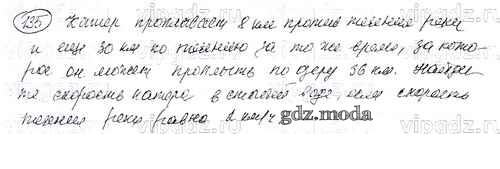 735 Катер проплывает 8 км против течения реки
и еще 30 км по течению за то же время, за кото-
рое он может проплыть по озеру 36 км. Найди-
те скорость катера в стоячей воде, если скорость
течения реки равна 2 км/ч
gdz.moda
vipadz.ru